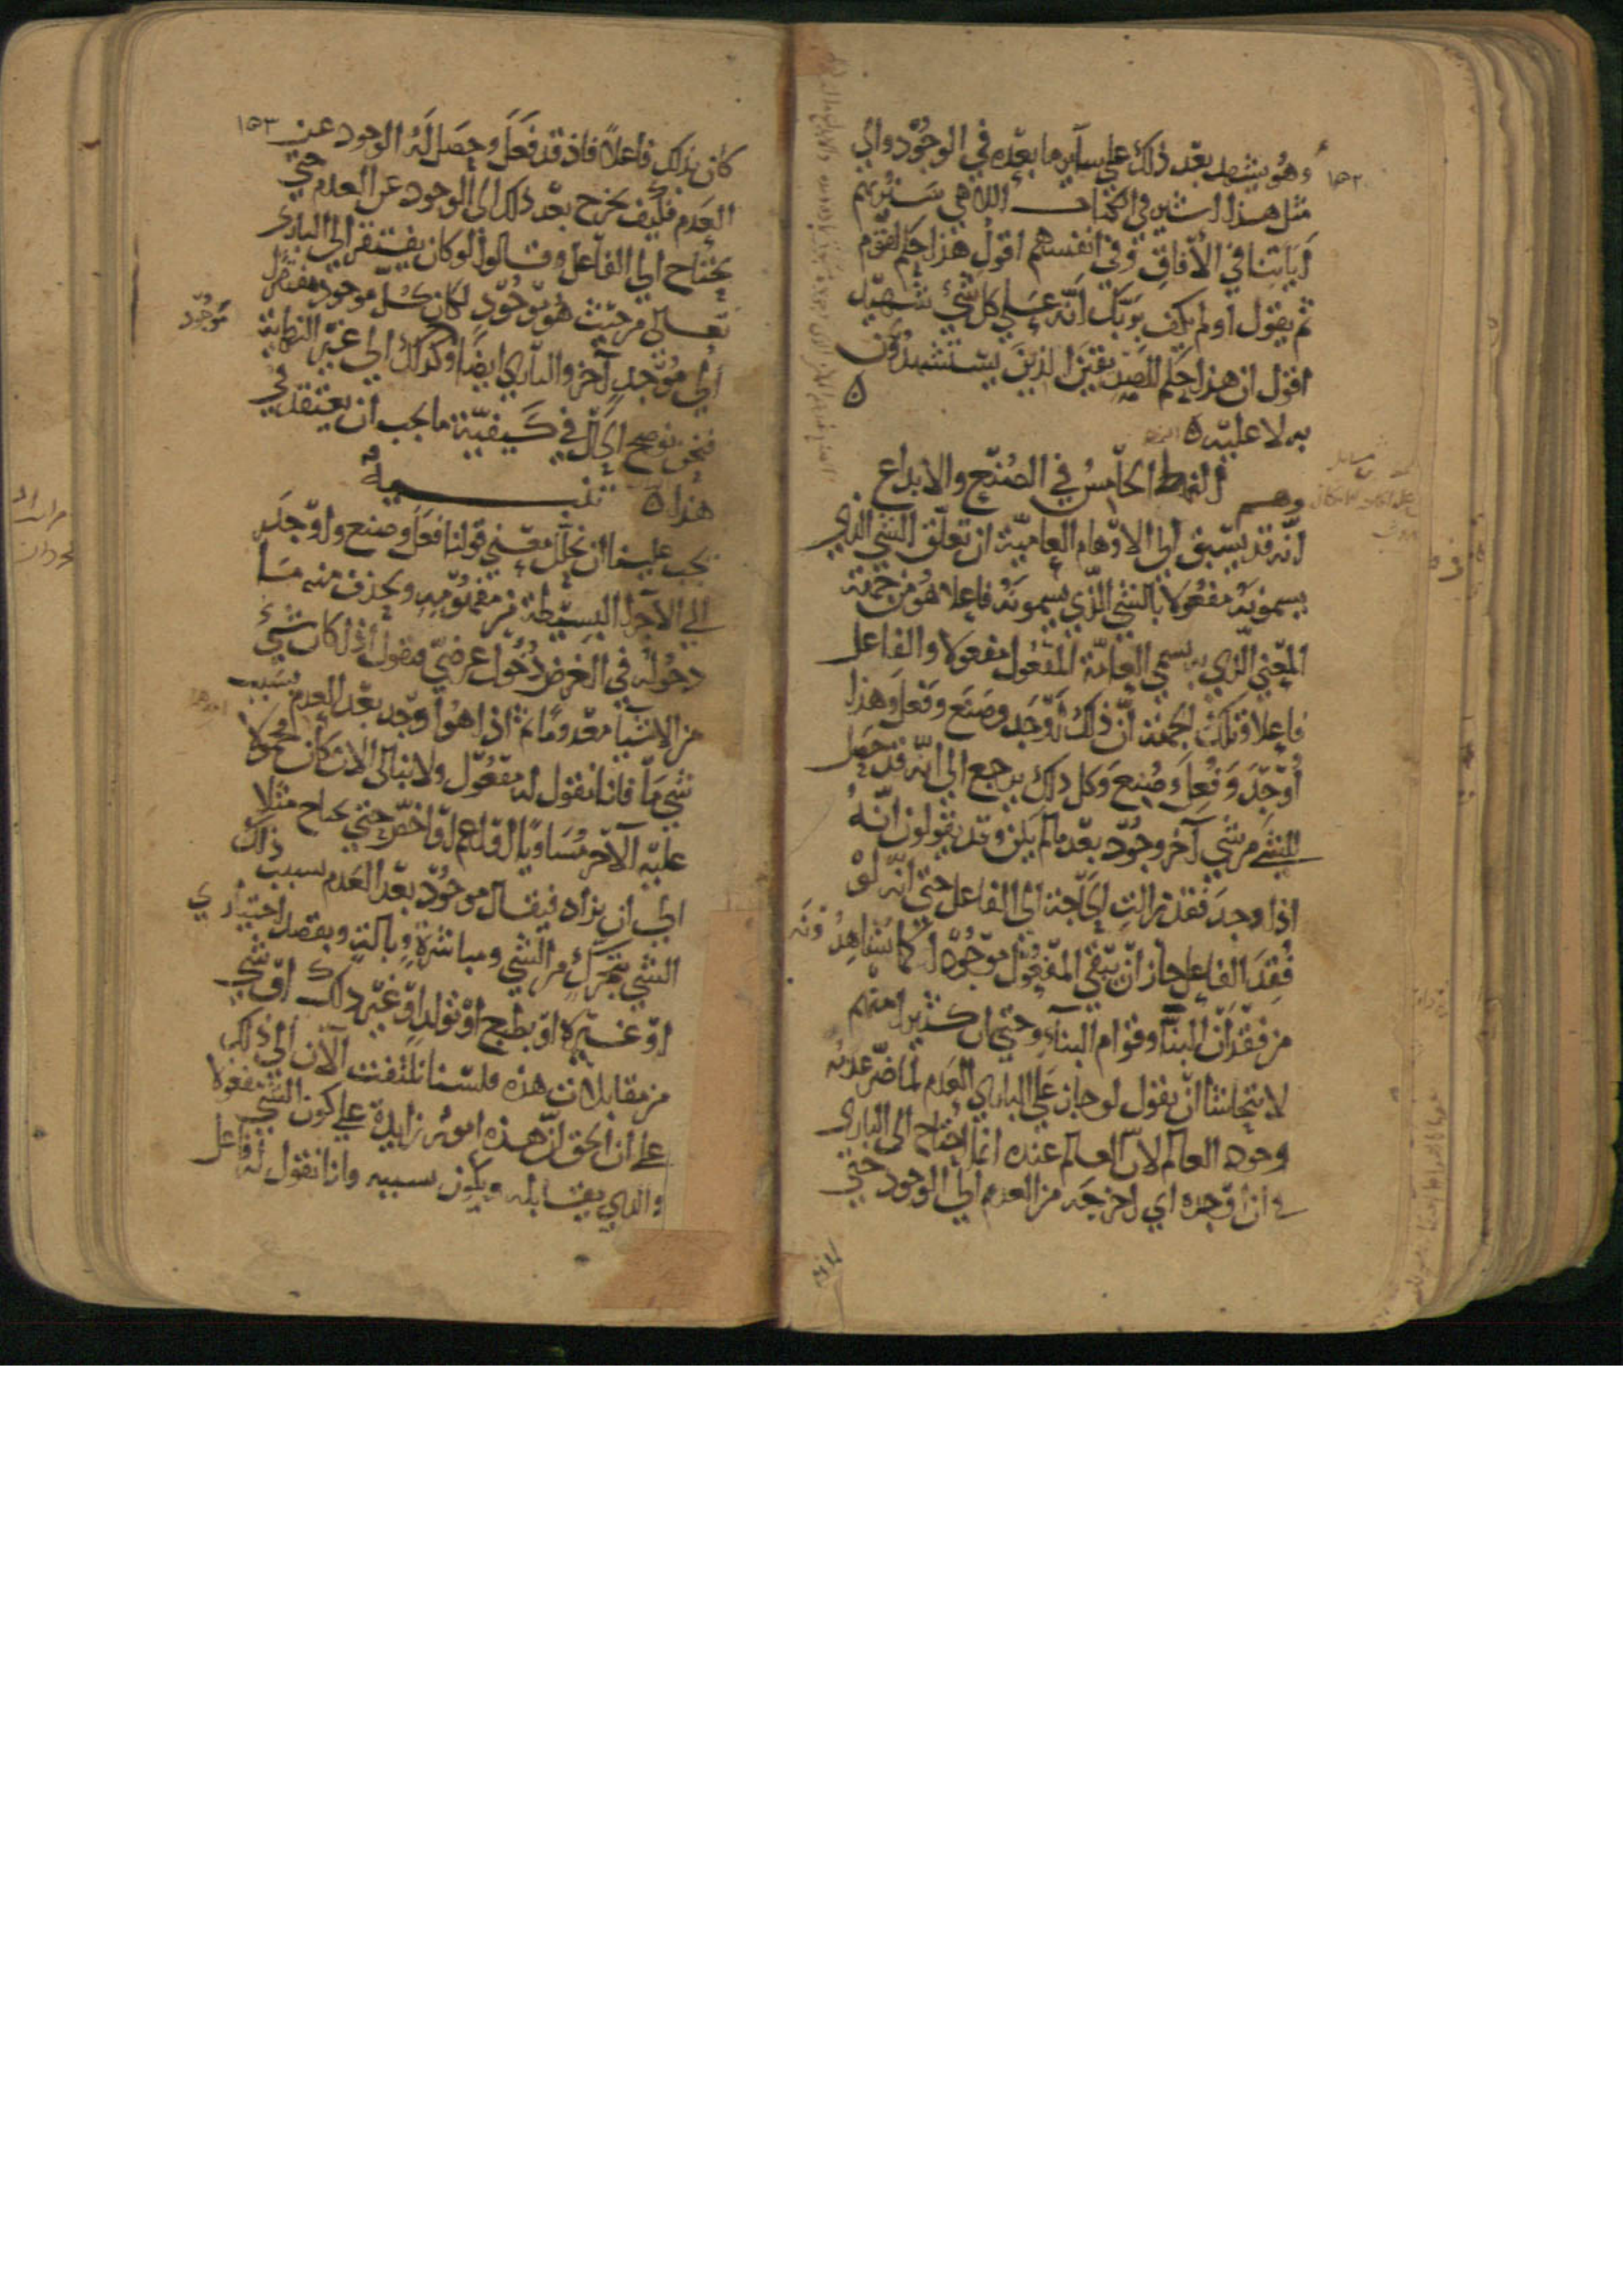 ١٥٢
وهو يشهد بعد ذلك على ساير ما بعده في الوجود والى
مثل هذا اشير في الكتاب الالاهي سنريهم
اياتنا في الآفاق وفي انفسهم اقول هذا حكم لقوم
ثم يقول اولم يكف بربك انه على كل شيء شهيد
اقول ان هذا حكم للصديقين الذين يستشهدون
به لا عليه ه
النمط الخامس في الصنع والابداع
وهم
انه قد يسبق الى الاوهام العامية ان تعلق الشي الذي
يسمونه مفعولا بالشي الذي يسمونه فاعلا هو من جهة
المعنى الذي به يسمي العامة المفعول مفعولا والفاعل
فاعلا وتلك الجهة ان ذلك اوجد وصنع وفعل وهذا
اوجد وفعل وصنع وكل ذلك يرجع الى انه قد حصل
للشي من شي آخر وجود بعد ما لم يكن وقد يقولون انه
اذا وجد فقد زالت الحاجة الى الفاعل حتى انه لو
فقد الفاعل جاز ان يبقى المفعول موجودا كما يشاهدونه
من فقدان البناء وقوام البناء وحتى ان كثيرا منهم
لا يتحاشا ان يقول لو جاز على الباري العدم لما ضر عدمه
وجود العالم لان العالم عنده انما احتاج الى الباري
في ان اوجده اي اخرجه من العدم الى الوجود حتى
١٥٣
كان بذلك فاعلا فاذ قد فعل وحصل له الوجود عن
العدم فكيف يخرج بعد ذلك الى الوجود عن العدم حتى
يحتاج الى الفاعل وقالوا لو كان يفتقر الى الباري
تعالى من حيث هو موجود لكان كل موجود مفتقرا
موجود
الى موجد آخر والباري ايضا وكذلك الى غير النهاية
فنحن نوضح الحال في كيفية ما يجب ان يعتقد في
هذا ه تنبيه
يجب علينا ان نحلل معنى قولنا فعل وصنع واوجد
الى الاجزا البسيطة من مفهومه ونحذف منه ما
دخوله في الغرض دخول عرضي فنقول اذا كان شيء
من الاشيا معدوما ثم اذا هو اوجد بعد العدم بسبب
شي ما فانا نقول له مفعول ولا نبالي الان كان محمولا
عليه الآخر مساويا او اعم او اخص حتى يحتاج مثلا
الى ان يزاد فيقال موجود بعد العدم بسبب ذلك
الشي بتحرك من الشي ومباشرة وبالة وبقصد اختياري
او غيره او بطبع او تولد او غير ذلك او شي
من مقابلات هذه فلسنا نلتفت الآن الى ذلك
على ان الحق ان هذه امور زايدة على كون الشي مفعولا
والذي يقابله ويكون سببه وانا نقول له فاعل